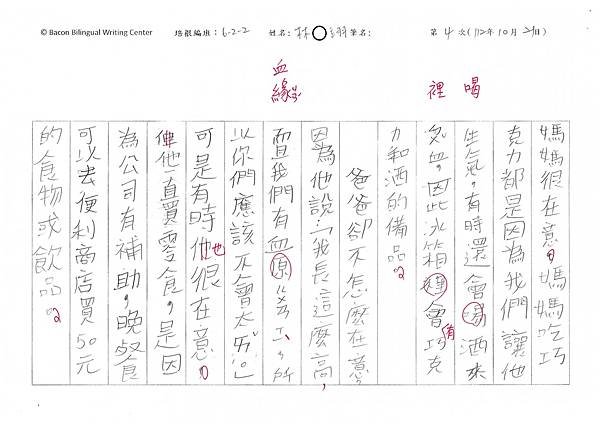 © Bacon Bilingual Writing Center 培根編班：6-2-2 姓名：林○翊 筆名： 第 4 次(112年10月21日)
血緣 裡 喝
媽媽很在意，媽媽吃巧
克力都是因為我們讓他
生氣，有時還會湯酒來
血，因此冰箱會有巧克
力和酒的備品。
爸爸卻不怎麼在意
因為他說：「我長這麼高，
而且我們有血原，所
以你們應該不會太ㄞˇ。」
可是有時他也很在意，
他一直買零食，是因
為公司有補助，晚餐
可以去便利商店買50元
的食物或飲品。